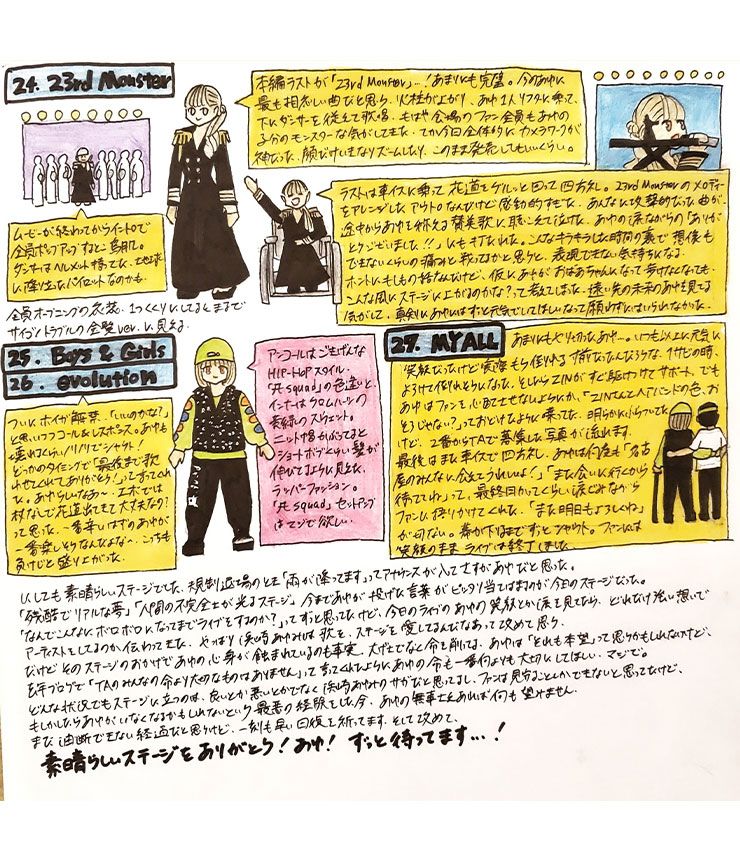 24. 23rd Monster
本編ラストが「23rd Monster」…！あまりにも完璧。今のあゆに
最も相応しい曲だと思う。火柱が上がり、あゆ1人リフトに乗って、
下にダンサーを従えて歌唱。もはや会場のファン全員もあゆの
子分のモンスターな気がしてきた。てか今日全体的にカメラワークが
神だった。顔だけいきなりズームしたり。このまま発売してもいいくらい。
ムービーが終わってからイントロで
全員ポップアップすると鳥肌。
ダンサーはヘルメット持ってた。地球
に降り立ったパイセットなのかも
全員オープニングの衣装。1つくくりにしてるとまるで
サイゴノトラブルの金髪ver.に見える。
ラストは車イスに乗って花道をグルッと回って四方礼。23rd Monsterのメロディー
をアレンジしたアウトロなんだけど感動的すぎた。あんなに攻撃的だった曲が、
途中からあゆを称える賛美歌に聴こえて泣けた。あゆの涙ながらの「ありが
とうございました!!」にもまた泣けた。こんなキラキラした時間の裏で想像も
できないくらいの痛みと戦ってるかと思うと、表現できない気持ちになる。
ホントにもしもの話なんだけど、仮にあゆがおばあちゃんになって歩けなくなっても
こんな風にステージに上がるのかな？って考えてしまった。遠い先の未来のあゆを見てる
気がして、真剣にあゆにはずっと元気でいてほしいなって願わずにはいられなかった。
25. Boys & Girls
26. evolution
ついにボイガ解禁、「いいのかな？」
と思いつつコール&レスポンス。あゆも
壊れるくらいノリノリでジャンプ！
どっかのタイミングで「最後まで歌
わせてくれてありがとう！」って言ってくれ
た。あゆらしいなあ〜。エボでは
杖なしで花道出てきて大丈夫なの？
って思った。一番辛いはずのあゆが
一番楽しそうなんだよな〜。こっちも
負けじと盛り上がった。
アンコールはごきげんな
HIP-HOPスタイル。
「A squad」の色違いと、
インナーはタロムハーツの
長袖のスウェット。
ニット帽かぶってると
ショートボブくらい髪が
伸びてるように見えた。
ラッパーファッション。
「A squad」セットアップ
はマジで欲しい。
27. MY ALL
あまりにもやり切ったあゆ…。いつも以上に元気に
笑顔だったけど実際もう倒れる寸前だったんだろうな。1サビの時、
よろけて倒れそうになった。そしたらZINがすぐ駆けつけてサポート、でも
あゆはファンを心配させないようにか、「ZINてんと人「バンドの色、お
そろじゃない？」っておどけたように喋ってた。明らかにふらついてた
けど。2番からTAで募集した写真が流れます。
最後はまた車イスで四方礼。あゆは何度も「名古
屋のみんなに会えてうれしいよ！」「また会いに行くから
待ってわ」って、最終日かってくらい涙ぐみながら
ファンに語りかけてくれた。「また明日もよろしくね」
が切ない。幕が下りるまでずっとジャンプ。ファンには
笑顔のままライブは終了しました。
にしても素晴らしいステージでした。規制退場のとき「雨が降ってます」ってアナウンスが入ってさすがあゆだと思った。
「残酷でリアルな夢」「人間の不完全さが光るステージ」今まであゆが投げた言葉がピッタリ当てはまるのが今日のステージだった。
「なんでこんなにボロボロになってまでライブをするのか？」ってずっと思ってたけど、今日のライブのあゆの笑顔とか涙を見てたら、どれだけ強い想いで
アーティストをしてるのか伝わってきた。やっぱり浜崎あゆみは歌を、ステージを愛してるんだなぁって改めて思う。
だけどそのステージのおかげであゆの心身が蝕まれているのも事実。大げさでなく命を削ってる。あゆは「それも本望」って思うかもしれないけど、
去年ブログで「TAのみんなの命より大切なものはありません」って言ってくれたようにあゆの命も一番何よりも大切にしてほしい。マジで。
どんな状況でもステージに立つのは、良いとか悪いとかでなく浜崎あゆみのサガだと思ってるし、ファンは見守ることしかできないと思ってたけど、
もしかしたらあゆがいなくなるかもしれないという最悪の経験をした今、あゆの無事さえあれば何も望みません。
まだ油断できない経過だと思うけど、一刻も早い回復を祈ってます。そして改めて、
素晴らしいステージをありがとう！あゆ！ずっと待ってます…！